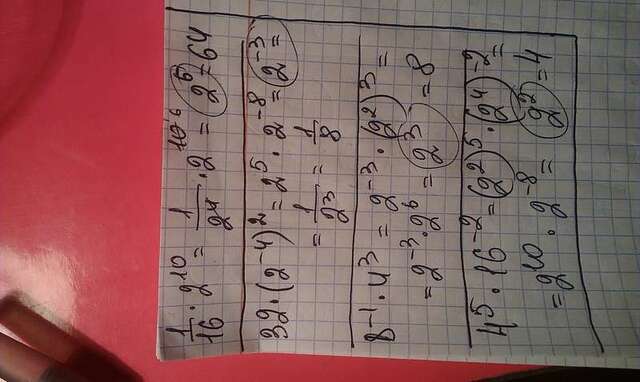 1/16 · 2¹⁰ = 1/2⁴ · 2¹⁰ = 2⁶ = 64
32 · (2⁻⁴)² = 2⁵ · 2⁻⁸ = 2⁻³ =
= 1/2³ = 1/8
8⁻¹ · 4³ = 2⁻³ · (2²)³ =
= 2⁻³ · 2⁶ = 2³ = 8
4⁵ · 16⁻² = (2²)⁵ · (2⁴)⁻² =
= 2¹⁰ · 2⁻⁸ = 2² = 4